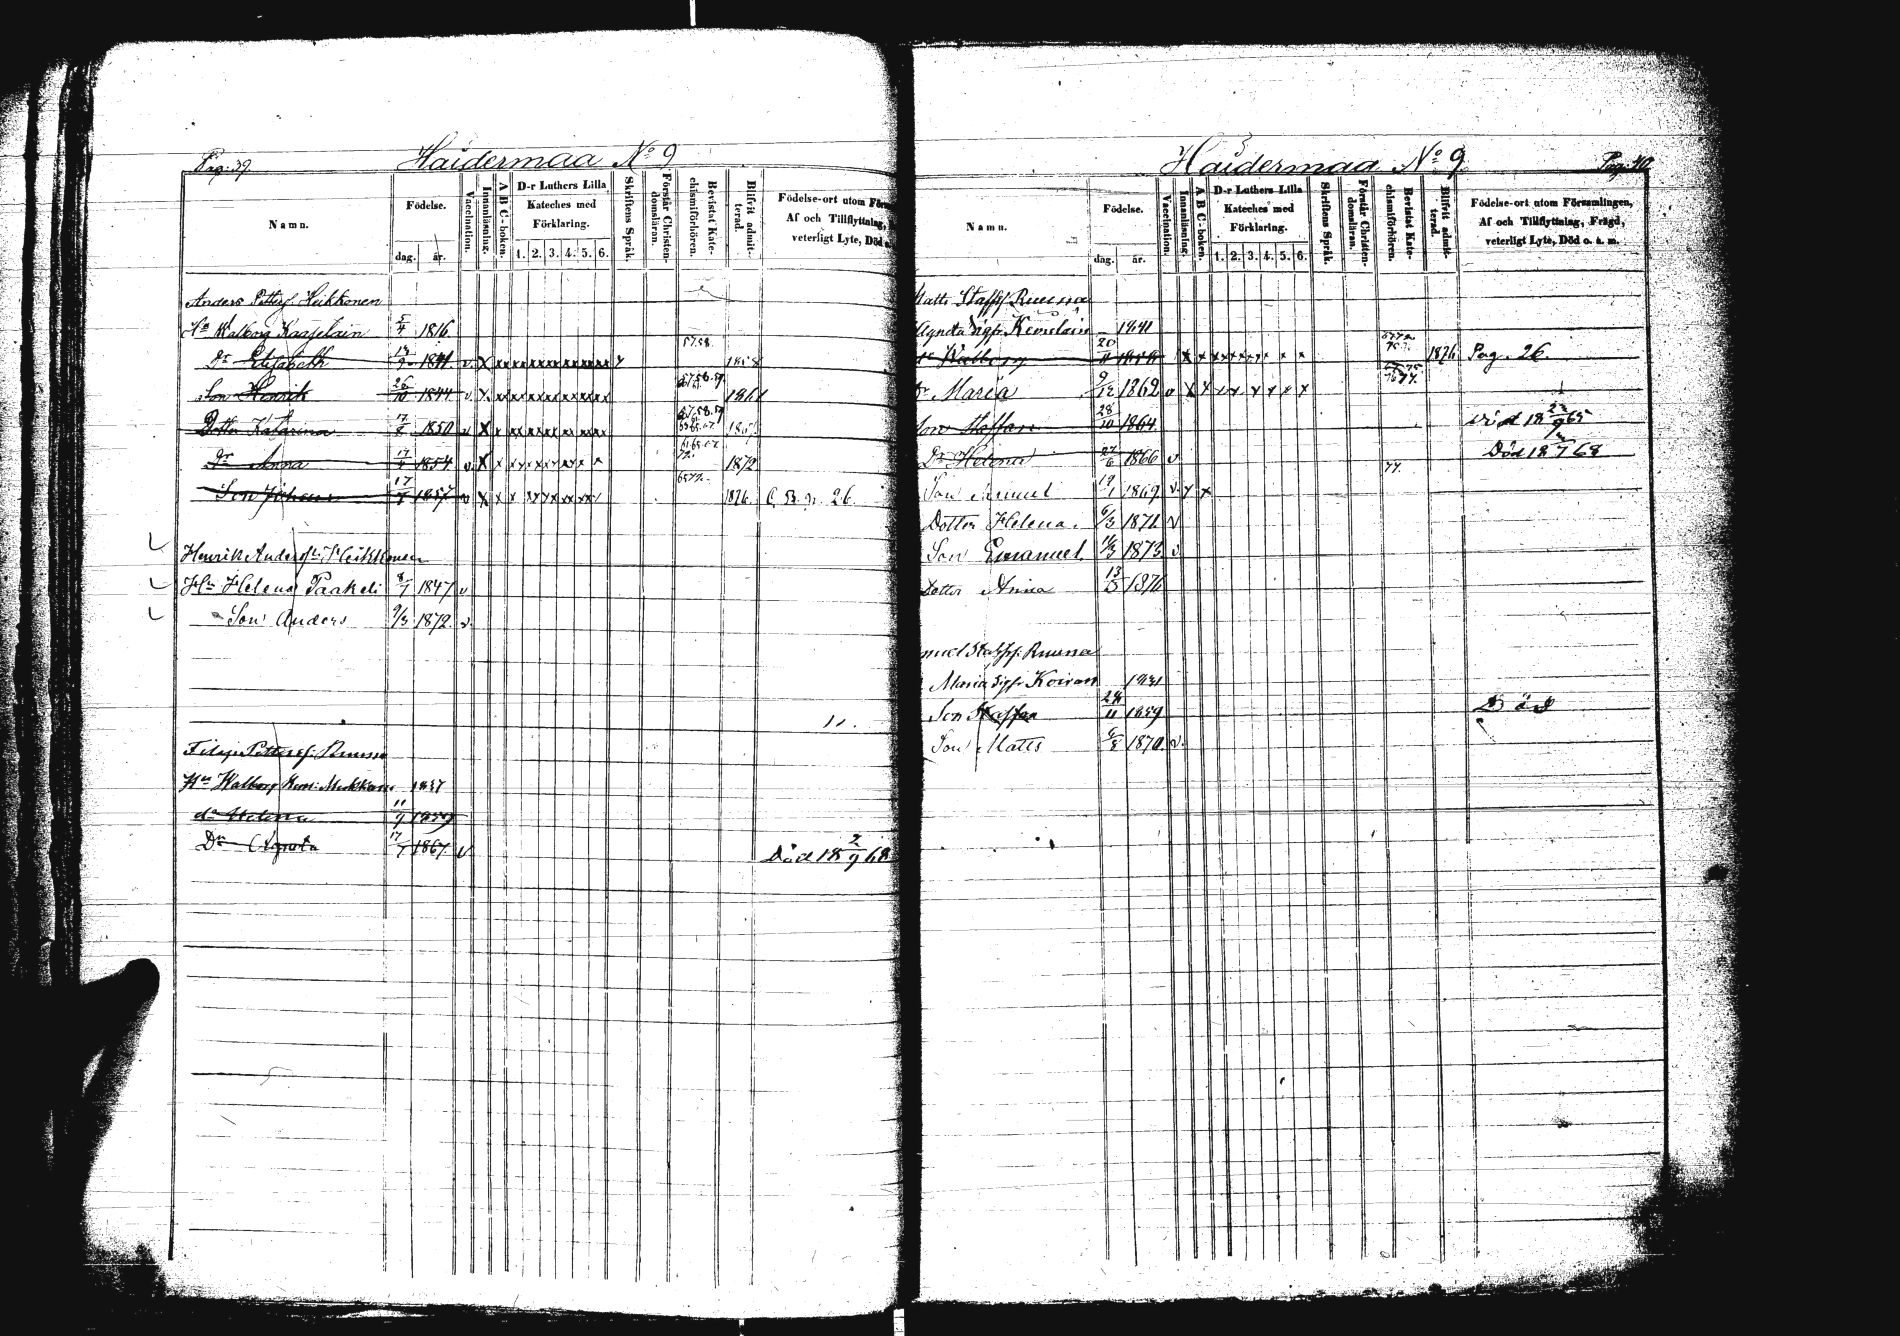 Pag. 39.
Haidermaa No 9
Namn.
Födelse.
dag. år.
Vaccination.
Innanläsning.
A B C-boken.
D-r Luthers Lilla
Kateches med
Förklaring.
1. 2. 3. 4. 5. 6.
Skriftens Språk.
Förstår Christen-
domsläran.
Bevistat Kate-
chismiförhören.
Blifvit admit-
terad.
Födelse-ort utom Förs
Af och Tillflyttning,
veterligt Lyte, Död o.
Anders Petterf. Heikkonen
Hu Walborg Kaapelain 5/4 1816
57.58.
Dr Elisabeth 13/9 1841 v. x xx xxxxxxxxxxxx x 1858
Son Henrik 26/10 1844 v. x. xx xxxxxxxxxx 57.58.59. 1861
Dotter Katarina 17/2 1850 v x x xx xxx xx xxx 57.58.59
Dr Anna 17/4 1854 v. x x x x x x x x x x 61.65.67. 72. 1872
Son Johan 17/7 1857 v x x x x x x x x x x 65.72. 1876. C. B. p. 26
Henrik Andersf. Heikkonen
Hu Helena Paakeli 8/7 1847 v
Son Anders 9/3 1872. v.
11.
Filip Pettersf. Ruuna
Hu Walborg 1837
dr Helena 11/9 1859
Dr Agneta 17/7 1867. v Död 18 2/9 68
Haidermaa No 9
Pag. 40.
Namn.
Födelse.
dag. år.
Vaccination.
Innanläsning.
A B C-boken.
D-r Luthers Lilla
Kateches med
Förklaring.
1. 2. 3. 4. 5. 6.
Skriftens Språk.
Förstår Christen-
domsläran.
Bevistat Kate-
chismiförhören.
Blifvit admit-
terad.
Födelse-ort utom Församlingen,
Af och Tillflyttning, Frägd,
veterligt Lyte, Död o. s. m.
Matts Staffsf Ruuna
Agneta Sigfr. Kemelain — 1841
Walborg 20/11 1858 x x x x x x x x x x 1876 Pag. 26
Dr Maria 9/12 1862 v x x x x x x x x 77.
Son Staffan 28/10 1864 död 18 23/9 65
Dr Helena 27/6 1866 v Död 18 68
77.
Son Samuel 19/1 1869 v. x x
Dotter Helena. 6/3 1871. v
Son Emanuel 16/3 1873 v.
Dotter Anna 13/5 1876
muel Staffsf. Ruuna
Maria Sigfr. Koivan 1831
Son Staffan 28/11 1859 Död
Son Matts 6/8 1870. v.